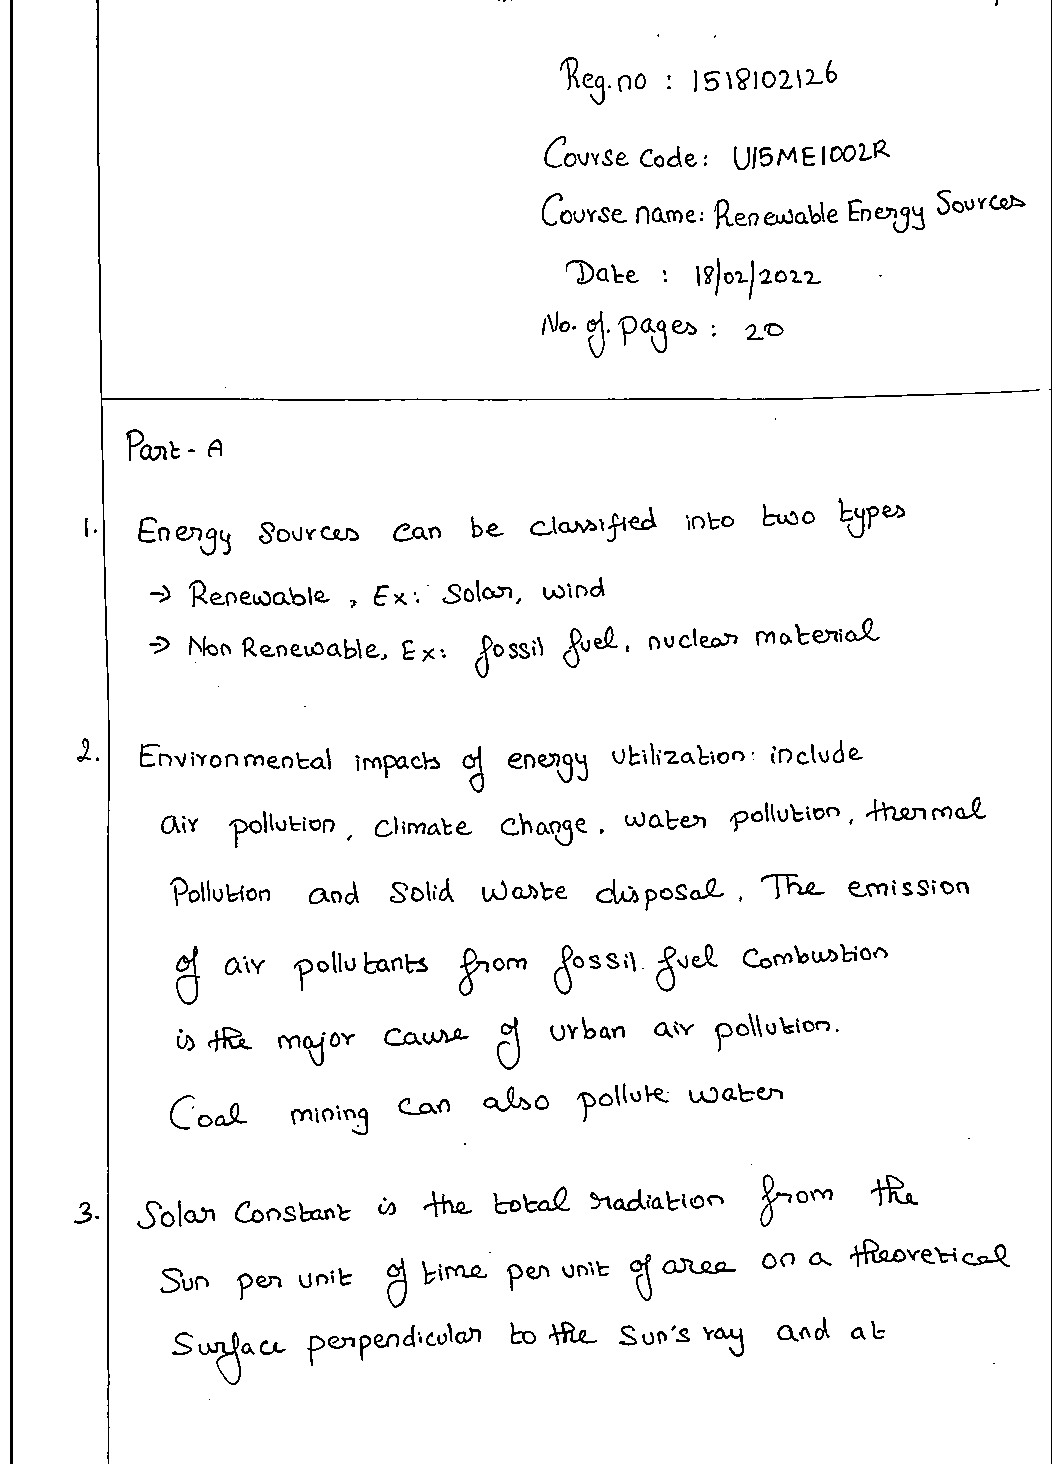 Reg.no : 1518102126
Course Code: U15ME1002R
Course name: Renewable Energy Sources
Date : 18/02/2022
No. of. pages : 20
Part - A
1. Energy Sources can be classified into two types
→ Renewable, Ex: Solar, wind
→ Non Renewable, Ex: fossil fuel, nuclear material
2. Environmental impacts of energy utilization include
air pollution, climate change, water pollution, thermal
Pollution and Solid waste disposal. The emission
of air pollutants from fossil fuel combustion
is the major cause of urban air pollution.
Coal mining can also pollute water
3. Solar Constant is the total radiation from the
Sun per unit of time per unit of area on a theoretical
Surface perpendicular to the Sun's ray and at